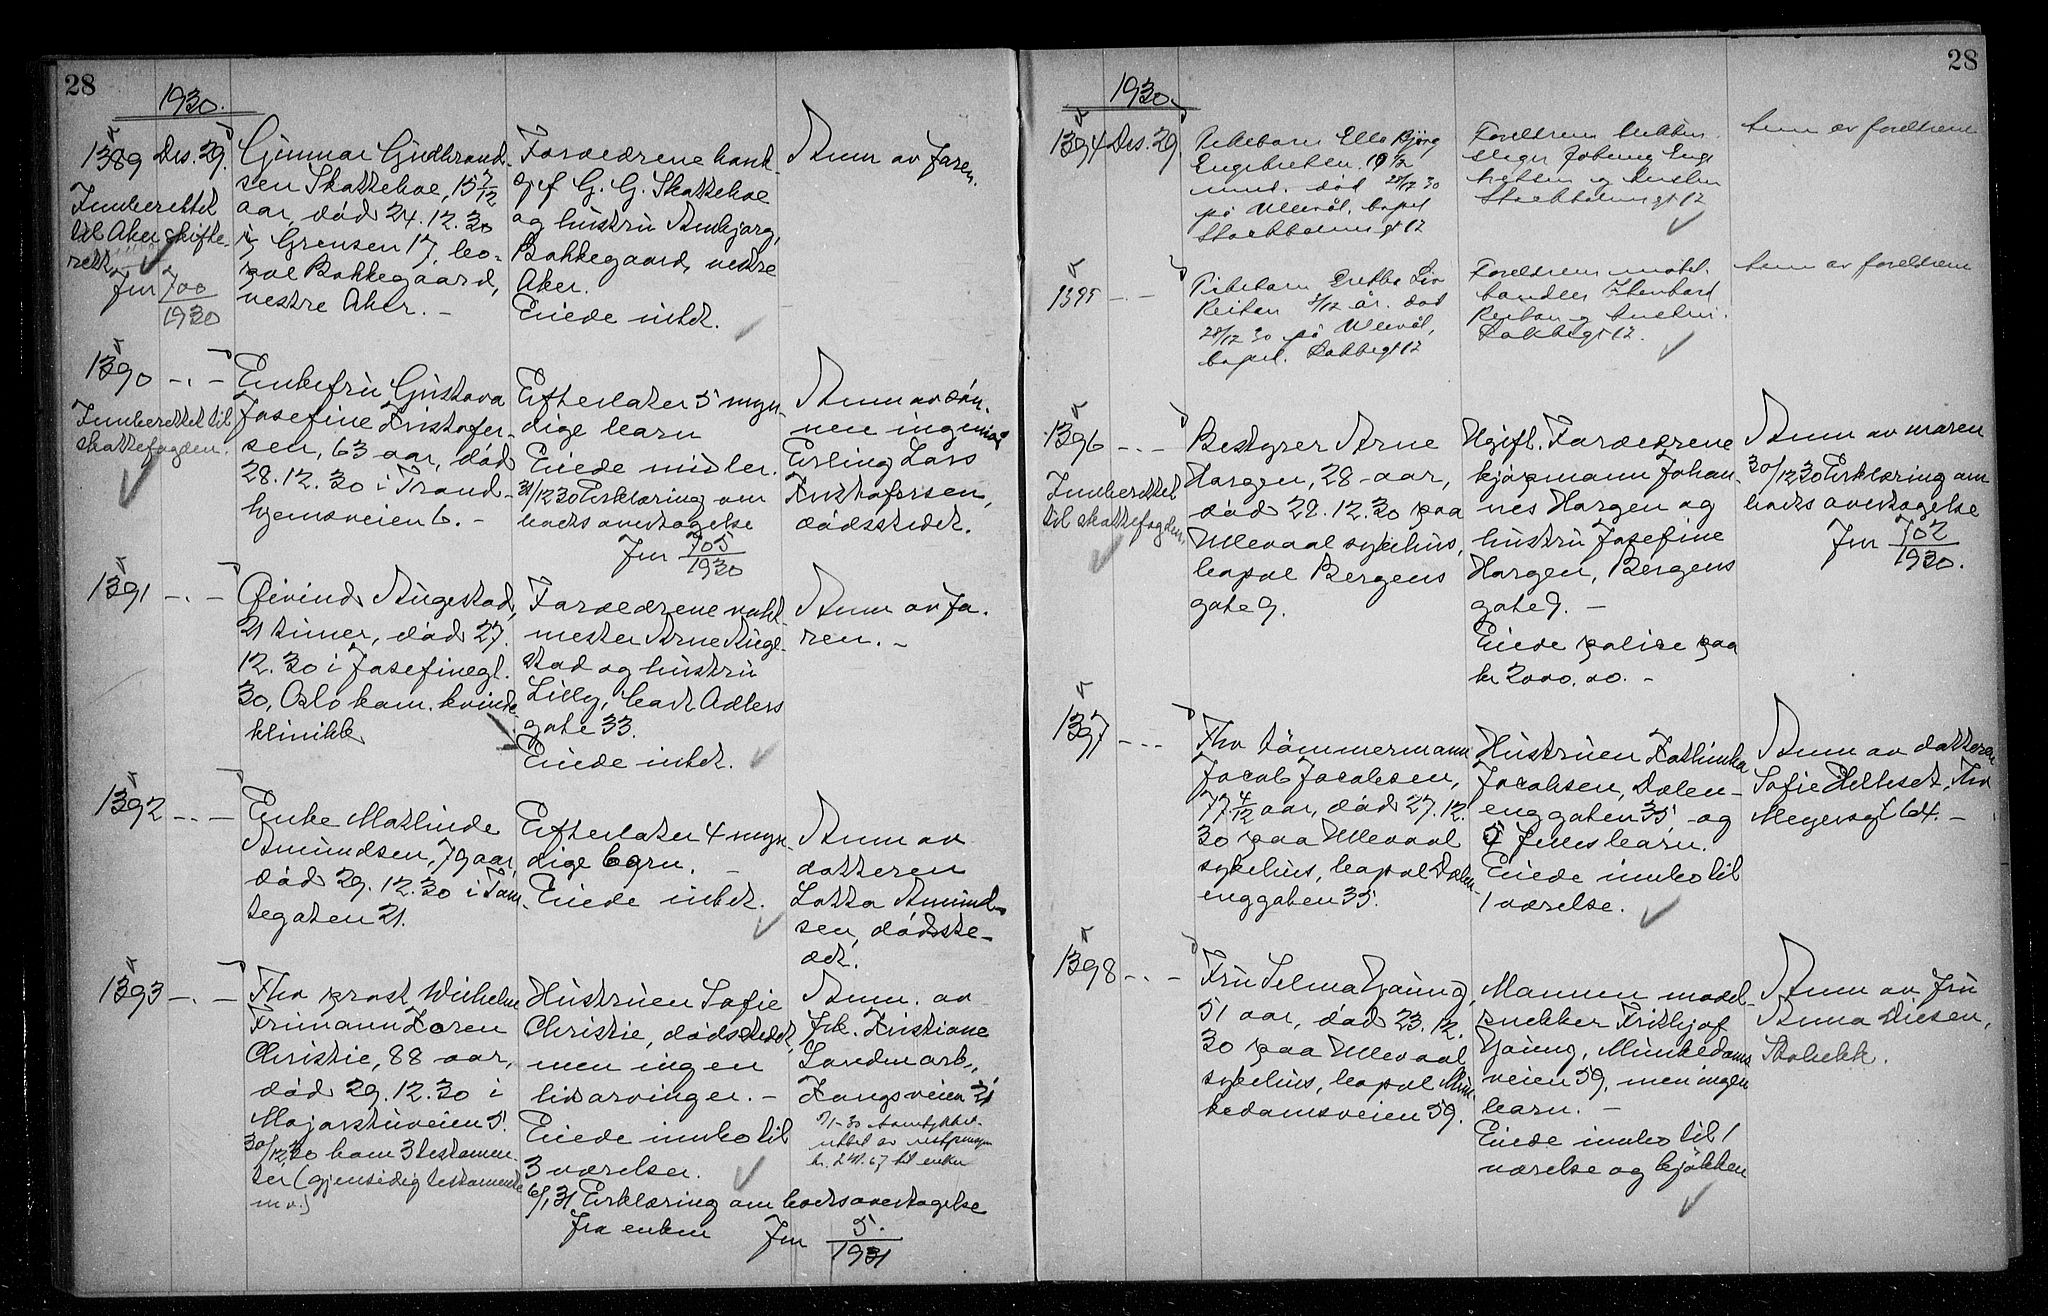 28
1930.
1389 Des. 29.
Innberettet
til Aker skifte-
rett
Jnr 700
1930
Gunnar Gudbrand-
sen Skatteboe, 15 7/12
aar, død 24.12.30
i Grensen 17, bo-
pæl Bakkegaard,
vestre Aker. -
Forældrene
G. G. Skatteboe
og hustru Annbjørg,
Bakkegaard, vestre
Aker.
Eiede intet.
Anm av faren.
1390 -"-
Innberettet til
skattefogden.
Enkefru Gustava
Josefine Kristofer-
sen, 63 aar, død
28.12.30 i Trond-
hjemsveien 6. -
Efterlater 5 myn-
dige barn
Eiede midler.
31/12 30 Erklæring om
boets overtagelse
Jnr 705
1930
Anm av søn-
nen ingeniør
Erling Lars
Kristofersen,
dødsstedet.
1391 -"-
Øivind Augestad,
21 timer, død 27.
12.30 i Josefinegt.
30, Oslo kom. kvinde-
klinikk
Forældrene vakt-
mester Arne Auge-
stad og hustru
Lilly, Cort Adlers
gate 33.
Eiede intet.
Anm av fa-
ren. -
1392 -"-
Enke Mathilde
Amundsen, 79 aar,
død 29.12.30 i Tom-
tegaten 21.
Efterlater 4 myn-
dige børn. -
Eiede intet.
Anm av
datteren
Lotta Amund-
sen, dødsste-
det.
1393 -"-
Fhv prost Wilhelm
Frimann Koren
Christie, 88 aar,
død 29.12.30 i
Majorstuveien 5.
30/12 30 kom 3 testamen-
ter (gjensidig testamente
m.v.)
Hustruen Sofie
Christie, dødsstedet,
men ingen
livsarvinger. -
Eiede innbo til
3 værelser.
6/1 31 Erklæring om boets overtagelse
fra enken Jnr 5.
1931
Anm. av
frk. Kristiane
Landmark,
Kongsveien 21
kr. 241.67 til enken
28
1930.
1394 Des. 29.
Pikebarn Ella Bjørg
Engebretsen. 10/12
mnd. død 28/12 30
på Ullevål, bopel
Stockholmsgt 12
Foreldrene
Johnny Enge
bretsen og hustru
Stockholmsgt 12
Anm av foreldrene
1395 -"-
Pikebarn Gretha Liv
Reitan år. død
28/12 30 på Ullevål,
bopel. Dobbegt 12
Foreldrene møbel-
handler
Reitan og hustru.
Dobbegt 12.
Anm av foreldrene
1396 -"-
Innberettet
til skattefogden.
Bestyrer Arne
Horgen, 28 aar,
død 28.12.30 paa
Ullevaal sykehus,
bopæl Bergens
gate 9.
Ugift. Forældrene
kjøpmann Johan-
nes Horgen og
hustru Josefine
Horgen, Bergens
gate 9. -
Eiede polise paa
kr 2000.00. -
Anm av moren
30/12 30 Erklæring om
boets overtagelse
Jnr 702
1930.
1397 -"-
Fhv tømmermann
Jacob Jacobsen,
77 4/12 aar, død 27.12.
30 paa Ullevaal
sykehus, bopæl Dælen-
enggaten 35.
Hustruen Kathinka
Jacobsen, Dælen-
enggaten 35 og
5 felles barn.
Eiede innbo til
1 værelse.
Anm av datteren
Sofie Helleset, Thv
Meyersgt 64. -
1398 -"-
Fru Selma Gaung,
51 aar, død 23.12.
30 paa Ullevaal
sykehus, bopæl Mun-
kedamsveien 59.
Mannen model-
snekker Fridtjof
Gaung, Munkedams
veien 59, men ingen
barn. -
Eiede innbo til 1
værelse og kjøkken
Anm av fru
Anna Diesen,
Stabekk.